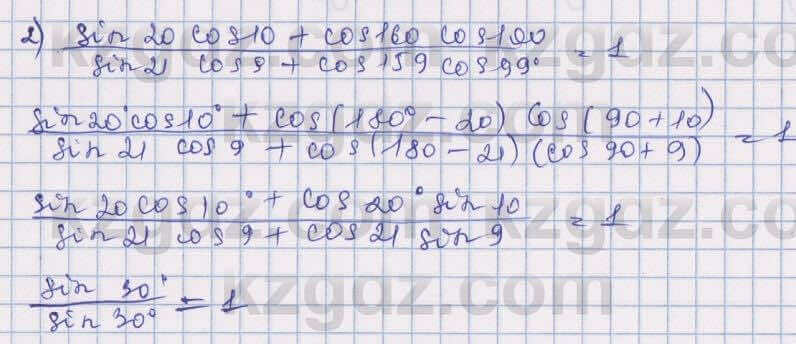 2) sin 20 cos 10 + cos 160 cos 100 / sin 21 cos 9 + cos 159 cos 99° = 1
sin 20° cos 10° + cos (180° - 20) cos (90 + 10) / sin 21 cos 9 + cos (180 - 21) (cos 90 + 9) = 1
sin 20 cos 10° + cos 20° sin 10 / sin 21 cos 9 + cos 21 sin 9 = 1
sin 30° / sin 30° = 1
kzgdz.com